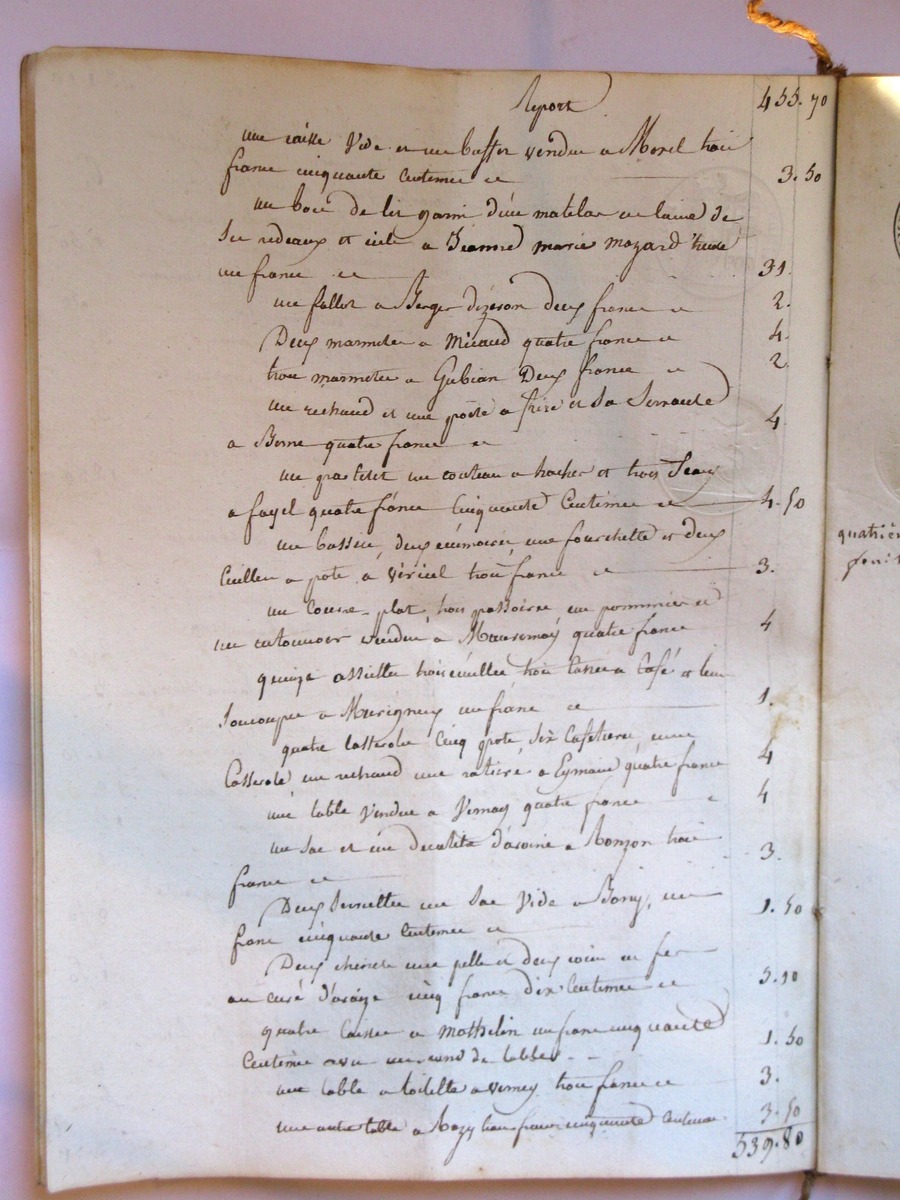 Report 455.70
une caisse vide et un buffet vendu a Morel trois
francs cinquante centimes 3.50
un bois de lit garni d'un matelas en laine de
ses redeaux et ciele a Jeanne marie mozard trente
un francs 31.
un fallot a Berger deux francs 2.
Deux marmites a Micaud quatre francs 4.
trois marmites a Gubian Deux francs 2.
un rechaud et une poële a frire et sa Servante
a Borne quatre francs 4
un gras letit un couteau a hacher et trois Seaux
a fayel quatre francs cinquante Centimes 4.50
un bassin, deux écumoires, une fourchette et deux
Cuillers a pots, a viricel trois francs 3.
un Couvre-plat, trois passoires un pommier et
un entonnoir vendu a quatre francs 4
quinze assiettes trois cuillers trois tasses a Café et leur
Soucoupes a un francs 1.
quatre Casserole Cinq pots, Six Cafetieres, une
Casserole, un rechaud une ratière a Eymain quatre francs 4
une table vendue a Vernay quatre francs 4
un Sac et un decalitre d'avoine a Ronzon trois
francs 3.
Deux Serviettes un Sac vide a Bory, un
franc cinquante centimes 1.50
Deux chenets une pelle et deux coins en fer
au curé d'araize cinq francs dix Centimes 5.10
quatre Caisses a Mathelin un franc cinquante
Centimes avec un rond de table 1.50
une table a toilette a verney trois francs 3.
une autre table a Rozy trois francs cinquante centimes 3.50
539.80
quatrièm